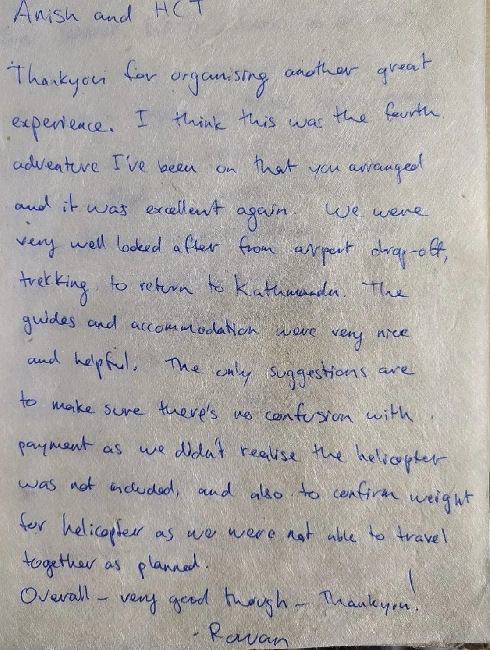 Anish and HCT
Thankyou for organising another great
experience. I think this was the fourth
adventure I've been on that you arranged
and it was excellent again. We were
very well looked after from airport drop-off,
trekking, to return to Kathmandu. The
guides and accommodation were very nice
and helpful. The only suggestions are
to make sure there's no confusion with
payment as we didn't realise the helicopter
was not included, and also to confirm weight
for helicopter as we were not able to travel
together as planned.
Overall - very good though - Thankyou!
- Rowan